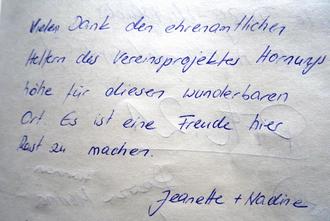 Vielen Dank den ehrenamtlichen
Helfern des Vereinsprojektes Hornungs
höhe für diesen wunderbaren
Ort. Es ist eine Freude hier
Rast zu machen.
Jeanette + Nadine